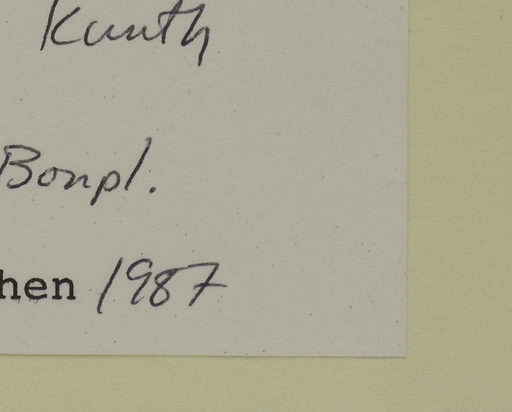 Kunth
Bonpl.
hen 1987